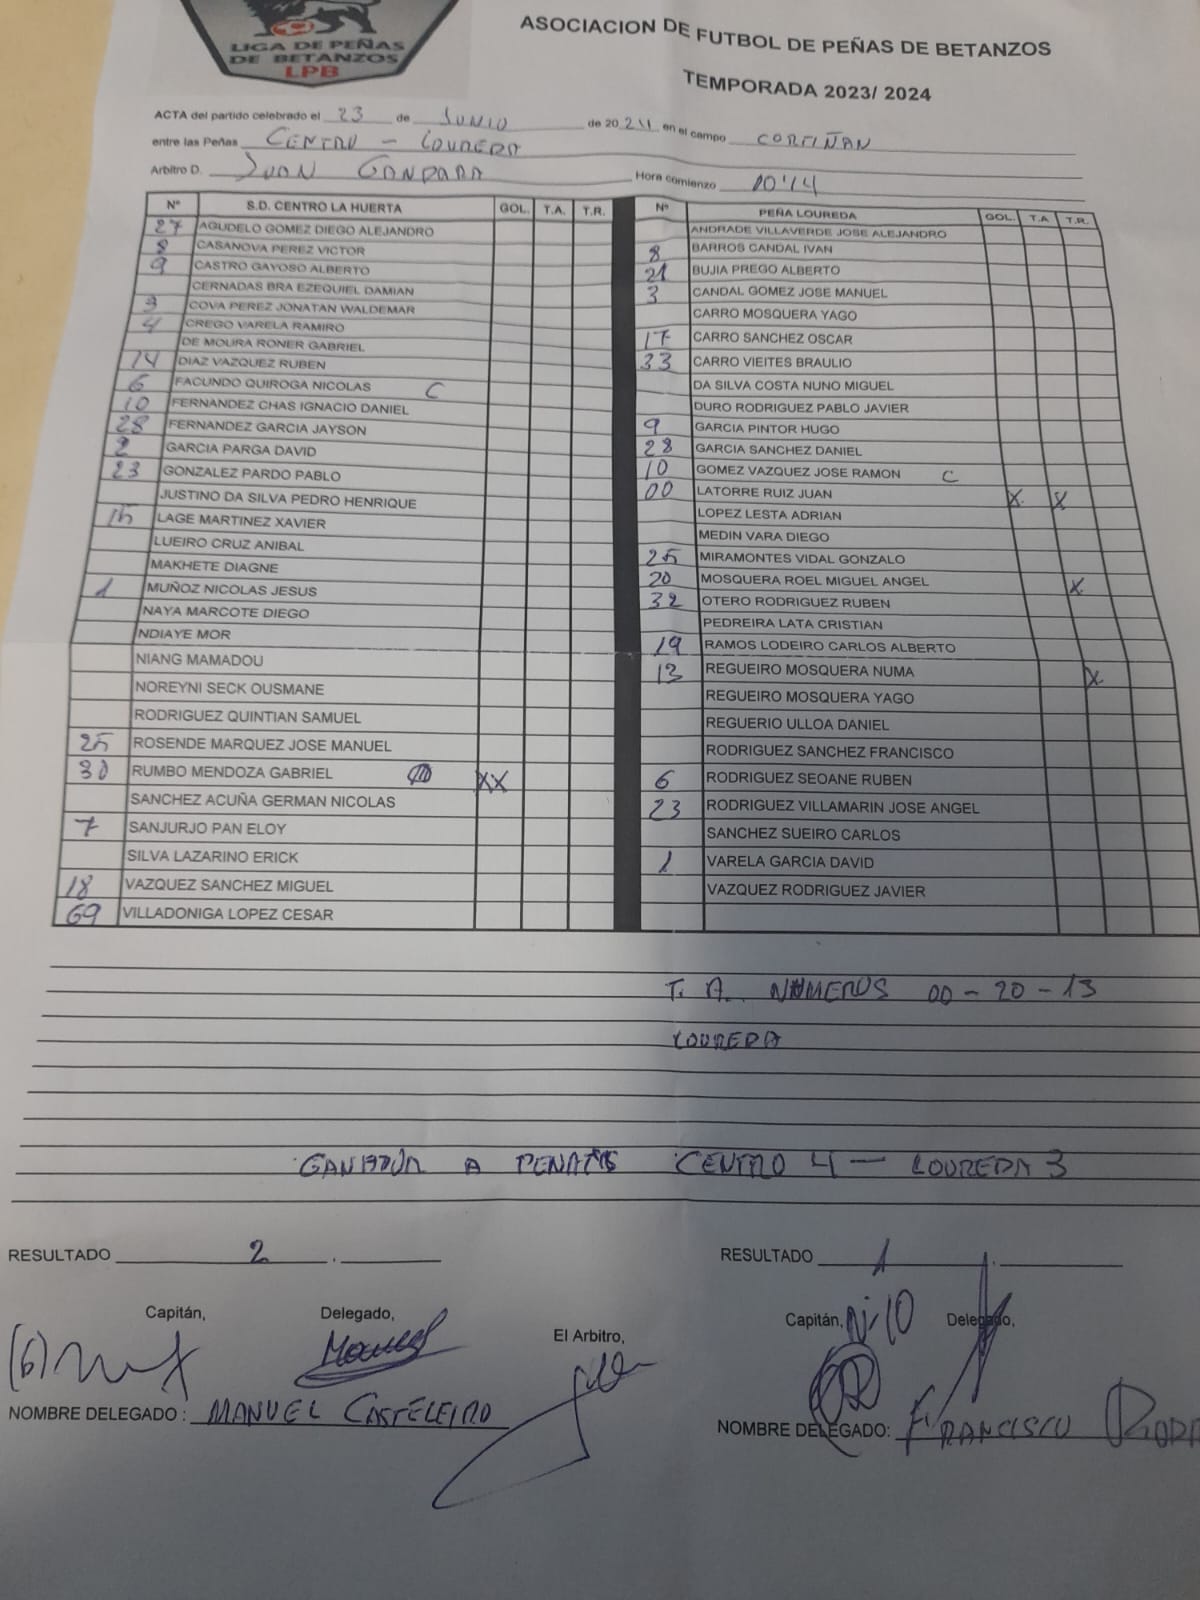 LIGA DE PEÑAS
DE BETANZOS
LPB
ASOCIACION DE FUTBOL DE PEÑAS DE BETANZOS
TEMPORADA 2023/ 2024
ACTA del partido celebrado el 23 de JUNIO de 2024 en el campo CORTIÑAN
entre las Peñas CENTRO - LOUREDA
Arbitro D. JUAN GANDARA Hora comienzo 10'14
Nº S.D. CENTRO LA HUERTA GOL. T.A. T.R. Nº PEÑA LOUREDA GOL. T.A T.R.
27 AGUDELO GOMEZ DIEGO ALEJANDRO ANDRADE VILLAVERDE JOSE ALEJANDRO
8 CASANOVA PEREZ VICTOR 8 BARROS CANDAL IVAN
9 CASTRO GAYOSO ALBERTO 21 BUJIA PREGO ALBERTO
CERNADAS BRA EZEQUIEL DAMIAN 3 CANDAL GOMEZ JOSE MANUEL
3 COVA PEREZ JONATAN WALDEMAR CARRO MOSQUERA YAGO
4 CREGO VARELA RAMIRO 17 CARRO SANCHEZ OSCAR
DE MOURA RONER GABRIEL 33 CARRO VIEITES BRAULIO
14 DIAZ VAZQUEZ RUBEN DA SILVA COSTA NUNO MIGUEL
6 FACUNDO QUIROGA NICOLAS C DURO RODRIGUEZ PABLO JAVIER
10 FERNANDEZ CHAS IGNACIO DANIEL 9 GARCIA PINTOR HUGO
28 FERNANDEZ GARCIA JAYSON 28 GARCIA SANCHEZ DANIEL
2 GARCIA PARGA DAVID 10 GOMEZ VAZQUEZ JOSE RAMON C
23 GONZALEZ PARDO PABLO 00 LATORRE RUIZ JUAN X X
JUSTINO DA SILVA PEDRO HENRIQUE LOPEZ LESTA ADRIAN
15 LAGE MARTINEZ XAVIER MEDIN VARA DIEGO
LUEIRO CRUZ ANIBAL 25 MIRAMONTES VIDAL GONZALO
MAKHETE DIAGNE 20 MOSQUERA ROEL MIGUEL ANGEL X
1 MUÑOZ NICOLAS JESUS 32 OTERO RODRIGUEZ RUBEN
NAYA MARCOTE DIEGO PEDREIRA LATA CRISTIAN
NDIAYE MOR 19 RAMOS LODEIRO CARLOS ALBERTO
NIANG MAMADOU 13 REGUEIRO MOSQUERA NUMA X
NOREYNI SECK OUSMANE REGUEIRO MOSQUERA YAGO
RODRIGUEZ QUINTIAN SAMUEL REGUERIO ULLOA DANIEL
25 ROSENDE MARQUEZ JOSE MANUEL RODRIGUEZ SANCHEZ FRANCISCO
30 RUMBO MENDOZA GABRIEL XX 6 RODRIGUEZ SEOANE RUBEN
SANCHEZ ACUÑA GERMAN NICOLAS 23 RODRIGUEZ VILLAMARIN JOSE ANGEL
7 SANJURJO PAN ELOY SANCHEZ SUEIRO CARLOS
SILVA LAZARINO ERICK 1 VARELA GARCIA DAVID
18 VAZQUEZ SANCHEZ MIGUEL VAZQUEZ RODRIGUEZ JAVIER
69 VILLADONIGA LOPEZ CESAR
T. A. NUMEROS 00 - 20 - 13
LOUREDA
GANADOR A PENALTIS CENTRO 4 - LOUREDA 3
RESULTADO 2 RESULTADO 1
Capitán, Delegado, El Arbitro, Capitán, Nº 10 Delegado,
(6) Manuel
NOMBRE DELEGADO : MANUEL CASTELEIRO NOMBRE DELEGADO: FRANCISCO RODR